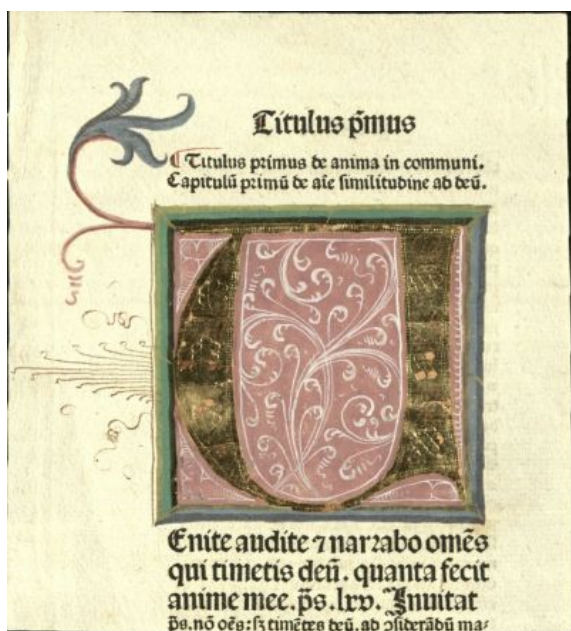 Titulus p̄mus
¶ Titulus primus de anima in communi.
Capitulū primū de aīe similitudine ad deū.
V
Enite audite ⁊ narrabo omēs
qui timetis deū. quanta fecit
anime mee. p̄s. lxv. Inuitat
p̄s. nō oēs: sꝫ timētes deū. ad ↄsiderādū ma⸗